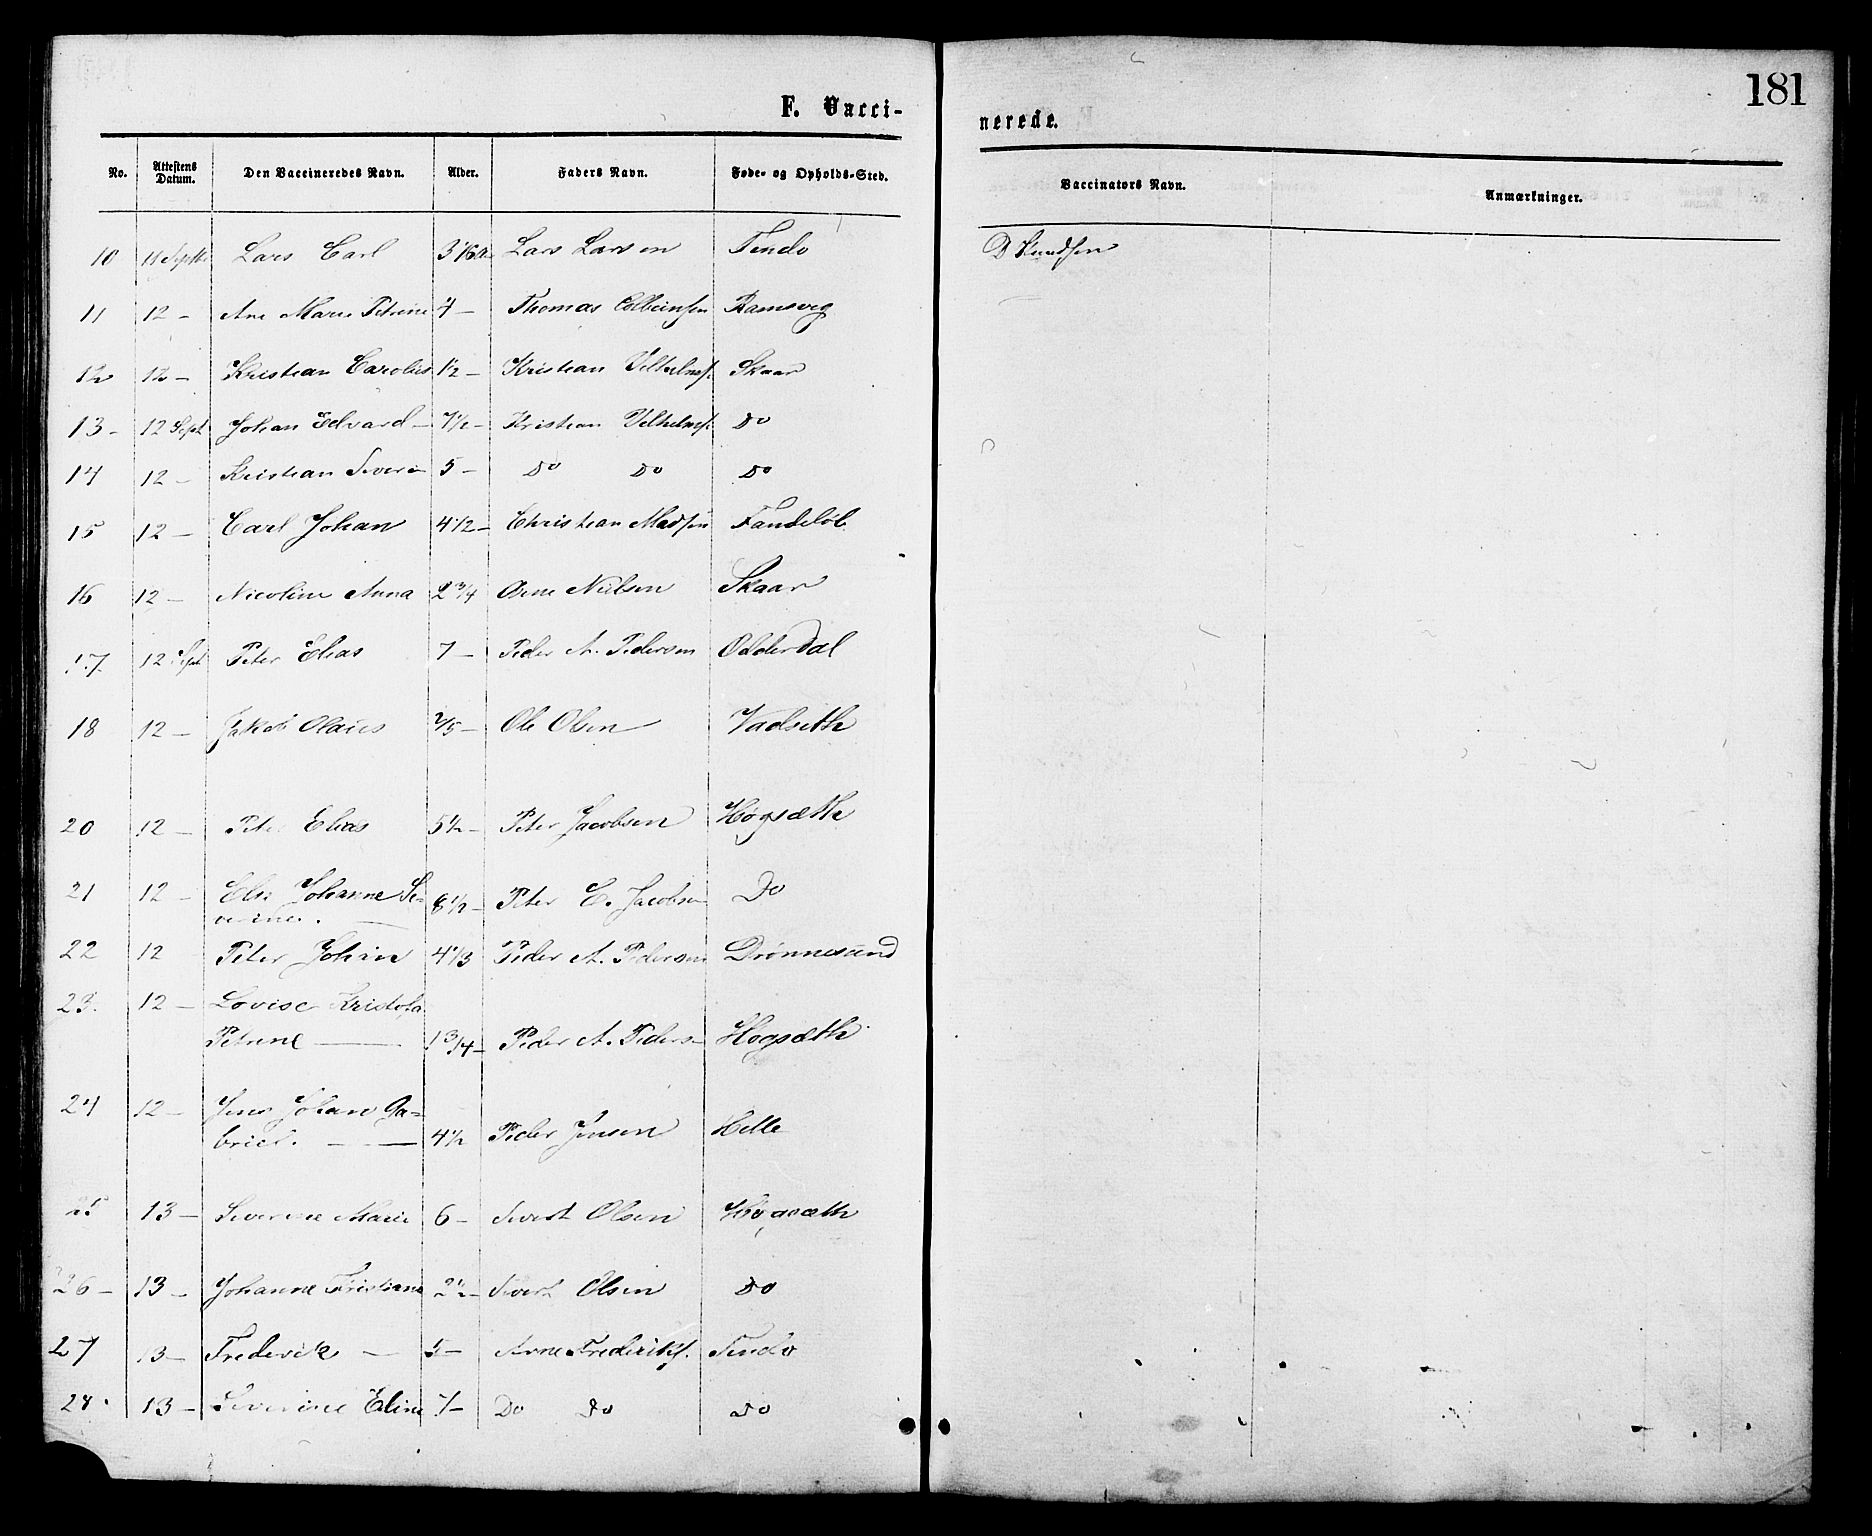 181
F. Vacci-
nerede.
No. Attestens Datum. Den Vaccineredes Navn. Alder. Faders Navn. Føde- og Opholds-Sted. Vaccinators Navn. Anmærkninger.
10 11 Septbr Lars Carl 3 Lars Larsen Tendø D Knudsen
11 12 - Ane Marie Petrine 4 - Thomas Ramsvig
12 12 - Kristian Carolus 1½ - Kristian Vilhelms. Skaar
13 - 12 Sept Johan Edvard - 7½ - Kristian Vilhelms. Do
14 12 - Kristian Severin 5 - Do Do Do
15 12 - Carl Johan 4 1/2 - Christian Madsen
16 12 - Nicoline Anna 2 3/4 Nielsen Skaar
17 12 Sept Peter Elias 7 - Peder A. Pedersen Odderdal
18 12 - Jakob Olaus - Ole Olsen Vadseth
20 12 - Peter Elias 5½ - Peter Jacobsen Høgsæth
21 12 - Elin Johanne Se-
verine. 8 1/2 - Peter E. Jacobsen Do
22 12 Peter Johan 4 1/3 Peder A. Pedersen Drønnesund
23. 12 - Lovise Kristofa
Petrine - 1 3/4 - Peder A. Peders- Høgsæth
24 12 - Jens Johan Ga-
briel. - 4½ Peder Jensen Helle
25 13 - Severine Marie 6 - Sivert Olsen Høgsæth
26 - 13 - Johanne Kristiane 2½ - Sivert Olsen Do
27 13 - Frederik - 5 - Arne Frederiks. Tendø
28. 13 - Severine Eline 7 - Do Do Do